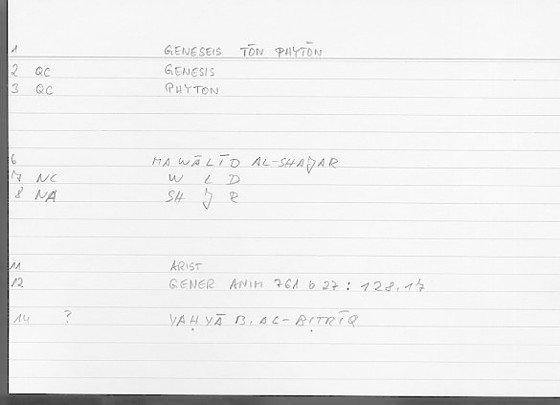 1 GENESEIS TŌN PHYTŌN
2 QC GENESIS
3 QC PHYTON
6 MAWĀLĪD AL-SHAǦAR
7 NC W L D
8 NA SH Ǧ R
11 ARIST
12 GENER ANIM 761 b 27 : 128,17
14 ? YAḤYĀ B. AL-BIṬRĪQ